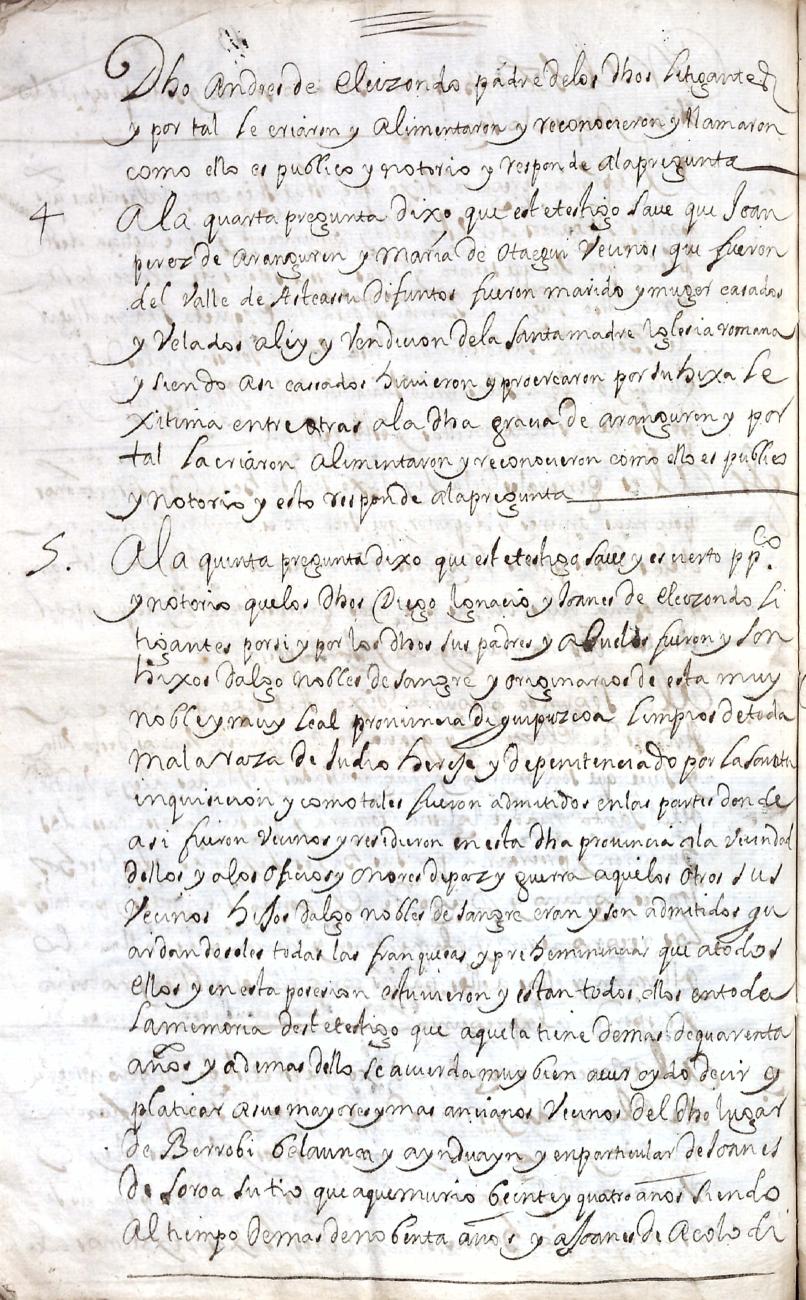 Dho Andres de Eleizondo padre delos dhos Litigantes
y por tal le criaron y alimentaron y reconocieron y llamaron
como ello es publico y notorio y responde alapregunta
4 Ala quarta pregunta dixo que estetestigo save que Joan
perez de aranguren y Maria de Otaegui Vecinos que fueron
del Valle de Asteassu difuntos fueron marido y muger casados
y Velados aley y Vendicion dela Santa madre Iglesia romana
y siendo asi cassados hicieron y procrearon por su hixa Le
xitima entre otras ala dha gracia de aranguren y por
tal La criaron alimentaron y reconocieron como ello es publico
y notorio y esto responde alapregunta
5. Ala quinta pregunta dixo que estetestigo save y es cierto ppco
y notorio quelos dhos Diego Ignacio y Joanes de Eleizondo Li
tigantes porsi y por los dhos sus padres y abuelos fueron y son
hixos dalgo nobles de sangre y originarios de esta muy
noble y muy Leal provincia de guipuzcoa Limpios de toda
mala raza de Judio hereje y depenitenciado por La Santa
inquisicion y como tales fueron admitidos en las partes donde
asi fueron Vecinos y residieron en esta dha provincia ala vecindad
dellos y alos oficios y onores depaz y guerra aquelos otros sus
Vecinos hijos dalgo nobles de sangre eran y son admitidos gu
ardandoseles todas las franquesas y preheminencias que atodos
ellos y en esta posesion estuvieron y estan todos ellos entoda
La memoria destetestigo que aquela tiene demas dequarenta
años y ademas dello se acuerda muy bien aver oydo decir y
platicar asus mayores y mas ancianos Vecinos del dho lugar
de Berrobi belaunca y aynduayn y enparticular de Joanes
de Soroa su tio que aquemurio beinte y quatro años siendo
Al tiempo demas de nobenta años y a Joanes de Acolodi